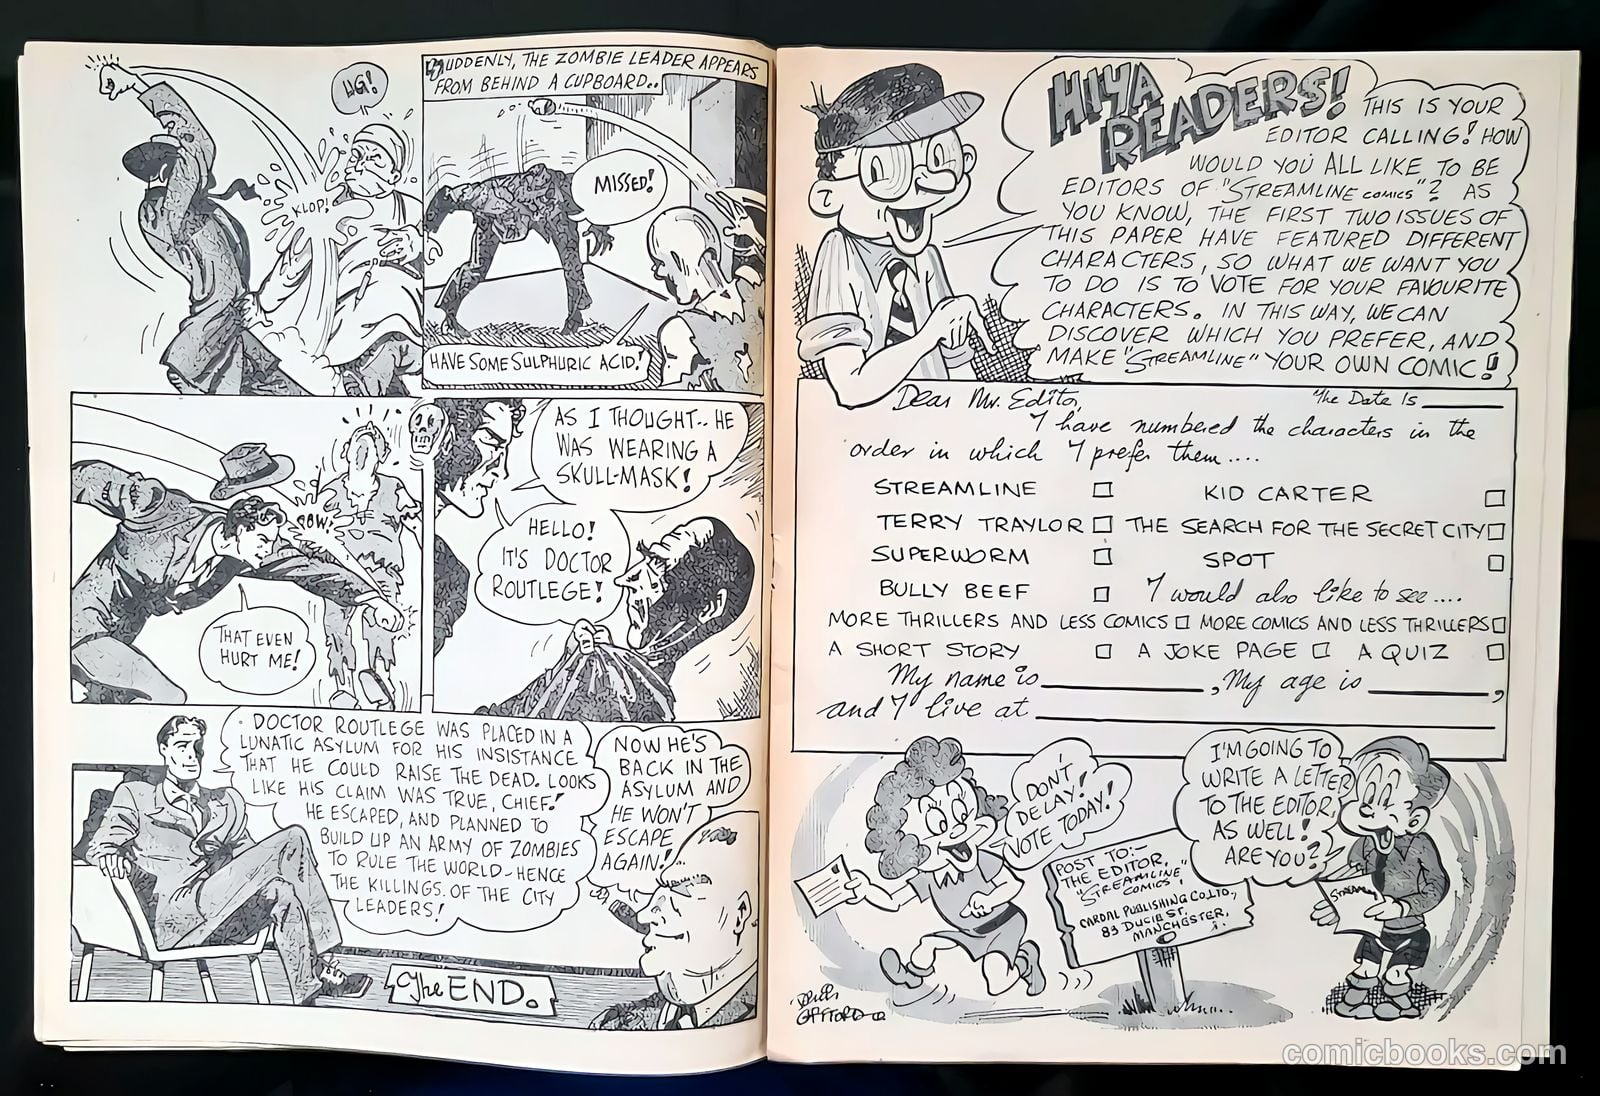 UG!
KLOP!
SUDDENLY, THE ZOMBIE LEADER APPEARS
FROM BEHIND A CUPBOARD..
MISSED!
HAVE SOME SULPHURIC ACID!
POW!
THAT EVEN
HURT ME!
AS I THOUGHT.. HE
WAS WEARING A
SKULL-MASK!
HELLO!
IT'S DOCTOR
ROUTLEGE!
DOCTOR ROUTLEGE WAS PLACED IN A
LUNATIC ASYLUM FOR HIS INSISTANCE
THAT HE COULD RAISE THE DEAD. LOOKS
LIKE HIS CLAIM WAS TRUE, CHIEF!
HE ESCAPED, AND PLANNED TO
BUILD UP AN ARMY OF ZOMBIES
TO RULE THE WORLD-HENCE
THE KILLINGS. OF THE CITY
LEADERS!
NOW HE'S
BACK IN THE
ASYLUM AND
HE WON'T
ESCAPE
AGAIN!..
The END.
HIYA
READERS!
THIS IS YOUR
EDITOR CALLING! HOW
WOULD YOU ALL LIKE TO BE
EDITORS OF "STREAMLINE COMICS"? AS
YOU KNOW, THE FIRST TWO ISSUES OF
THIS PAPER HAVE FEATURED DIFFERENT
CHARACTERS, SO WHAT WE WANT YOU
TO DO IS TO VOTE FOR YOUR FAVOURITE
CHARACTERS. IN THIS WAY, WE CAN
DISCOVER WHICH YOU PREFER, AND
MAKE "STREAMLINE" YOUR OWN COMIC!
Dear Mr. Editor, The Date Is
I have numbered the characters in the
order in which I prefer them....
STREAMLINE KID CARTER
TERRY TRAYLOR THE SEARCH FOR THE SECRET CITY
SUPERWORM SPOT
BULLY BEEF I would also like to see....
MORE THRILLERS AND LESS COMICS MORE COMICS AND LESS THRILLERS
A SHORT STORY A JOKE PAGE A QUIZ
My name is , My age is ,
and I live at
DON'T
DELAY!
VOTE TODAY!
POST TO:-
THE EDITOR,
"STREAMLINE
COMICS",
CARDAL PUBLISHING CO. LTD.,
83 DUCIE ST.
MANCHESTER. 1.
I'M GOING TO
WRITE A LETTER
TO THE EDITOR,
AS WELL!
ARE YOU?
DENIS
GIFFORD
comicbooks.com